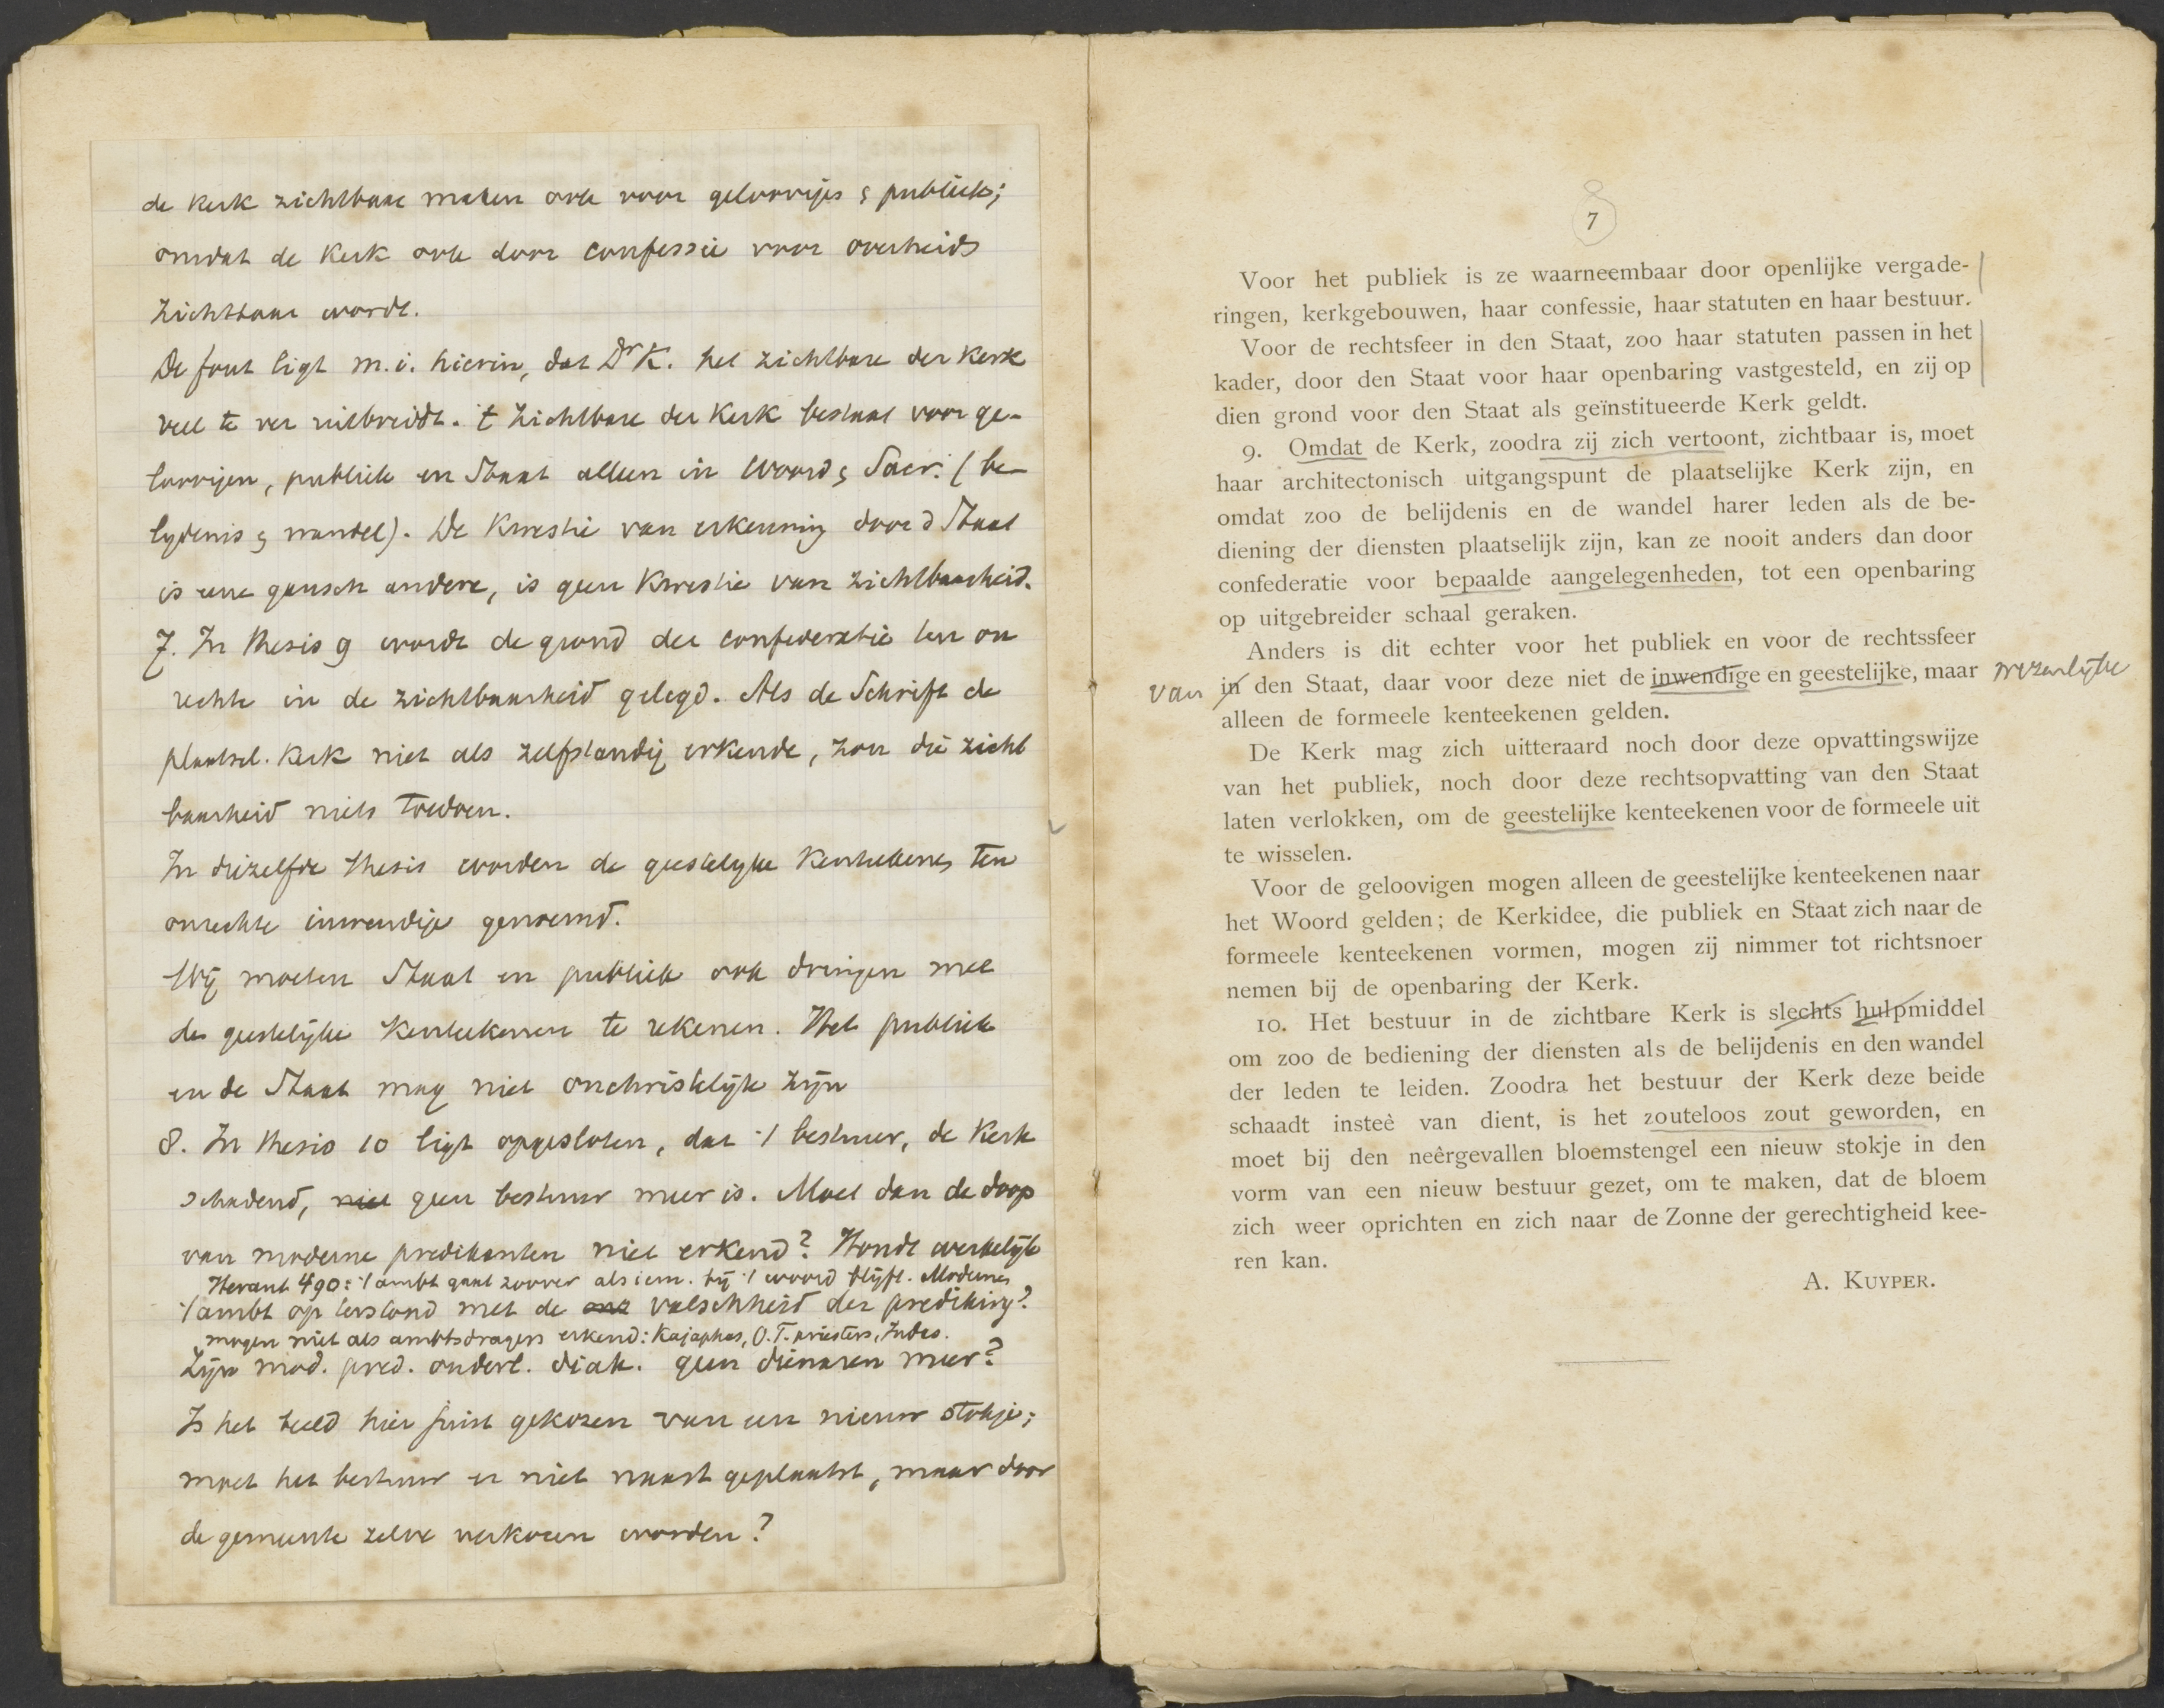 de kerk zichtbaar maken ook voor geloovigen & publiek;
omdat de Kerk ook door confessie voor overheid
zichtbaar wordt.
De fout ligt m.i. hierin, dat Dr K. het zichtbare der Kerk
veel te ver uitbreidt. 't Zichtbare der Kerk bestaat voor ge-
loovigen, publiek en Staat alleen in Woord & Sacr. (be-
lydenis & wandel). De Kwestie van erkenning door d Staat
is eene gansch andere, is geen Kwestie van zichtbaarheid.
7. In thesis 9 wordt de grond der confederatie ten on
rechte in de zichtbaarheid gelegd. Als de Schrift de
plaatsel. Kerk niet als zelfstandig erkende, zou die zicht
baarheid niets toedoen.
In diezelfde thesis worden de geestelyke Kenteekenen ten
onrechte inwendige genoemd.
Wij moeten Staat en publiek ook dringen met
de geestelijke Kenteekenen te rekenen. Het publiek
en de Staat mag niet onchristelijk zijn
8. In thesis 10 ligt opgesloten, dat 't bestuur, de Kerk
schadend, niet geen bestuur meer is. Moet dan de doop
van moderne predikanten niet erkend? Houdt werkelijk
Heraut 490: 't ambt gaat zoover als iem. bij 't woord blijft. Modernen
't ambt op terstond met de valschheid der prediking?
mogen niet als ambtsdragers erkend: Kajaphas, O.T. priesters, Judas.
Zijn mod. pred. ouderl. diak. geen dienaren meer?
Is het beeld hier juist gekozen van een nieuw stokje;
moet het bestuur er niet naast geplaatst, maar door
de gemeente zelve verkozen worden?
7
Voor het publiek is ze waarneembaar door openlijke vergade-
ringen, kerkgebouwen, haar confessie, haar statuten en haar bestuur.
Voor de rechtsfeer in den Staat, zoo haar statuten passen in het
kader, door den Staat voor haar openbaring vastgesteld, en zij op
dien grond voor den Staat als geïnstitueerde Kerk geldt.
9. Omdat de Kerk, zoodra zij zich vertoont, zichtbaar is, moet
haar architectonisch uitgangspunt de plaatselijke Kerk zijn, en
omdat zoo de belijdenis en de wandel harer leden als de be-
diening der diensten plaatselijk zijn, kan ze nooit anders dan door
confederatie voor bepaalde aangelegenheden, tot een openbaring
op uitgebreider schaal geraken.
Anders is dit echter voor het publiek en voor de rechtssfeer
van in den Staat, daar voor deze niet de inwendige en geestelijke, maar wezenlijke
alleen de formeele kenteekenen gelden.
De Kerk mag zich uitteraard noch door deze opvattingswijze
van het publiek, noch door deze rechtsopvatting van den Staat
laten verlokken, om de geestelijke kenteekenen voor de formeele uit
te wisselen.
Voor de geloovigen mogen alleen de geestelijke kenteekenen naar
het Woord gelden; de Kerkidee, die publiek en Staat zich naar de
formeele kenteekenen vormen, mogen zij nimmer tot richtsnoer
nemen bij de openbaring der Kerk.
10. Het bestuur in de zichtbare Kerk is slechts hulpmiddel
om zoo de bediening der diensten als de belijdenis en den wandel
der leden te leiden. Zoodra het bestuur der Kerk deze beide
schaadt insteè van dient, is het zouteloos zout geworden, en
moet bij den neêrgevallen bloemstengel een nieuw stokje in den
vorm van een nieuw bestuur gezet, om te maken, dat de bloem
zich weer oprichten en zich naar de Zonne der gerechtigheid kee-
ren kan.
A. KUYPER.